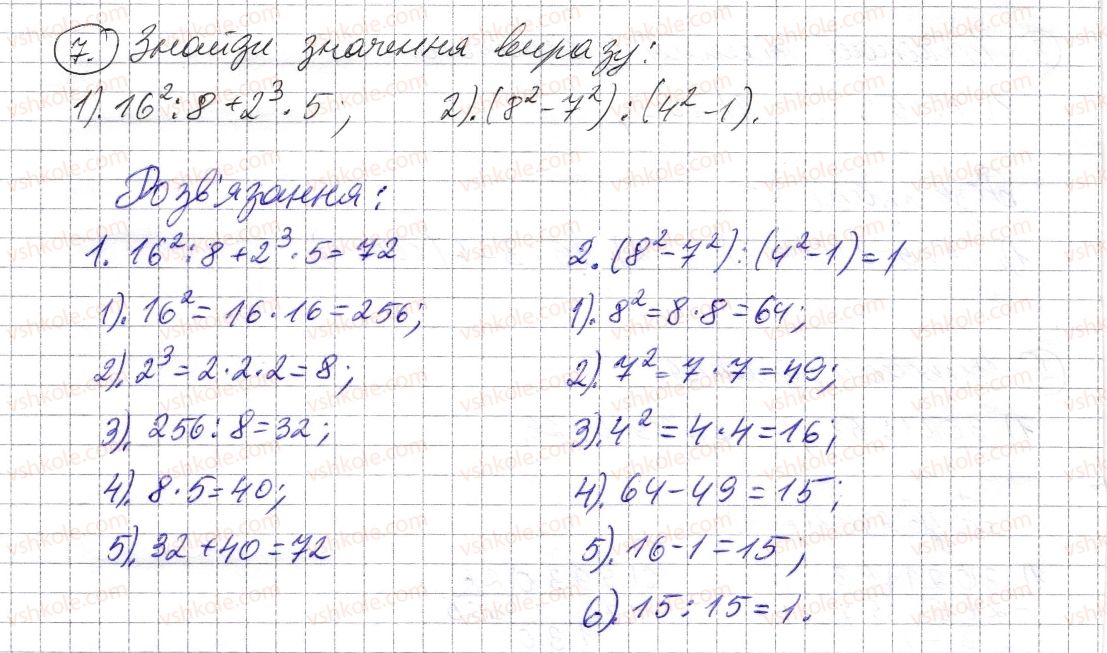 7. Знайди значення виразу:
1). 16²:8+2³·5; 2). (8²-7²):(4²-1).
Розв'язання:
1. 16²:8+2³·5=72
1). 16²=16·16=256;
2). 2³=2·2·2=8;
3). 256:8=32;
4). 8·5=40;
5). 32+40=72
2. (8²-7²):(4²-1)=1
1). 8²=8·8=64;
2). 7²=7·7=49;
3). 4²=4·4=16;
4). 64-49=15;
5). 16-1=15;
6). 15:15=1.
vshkole.com